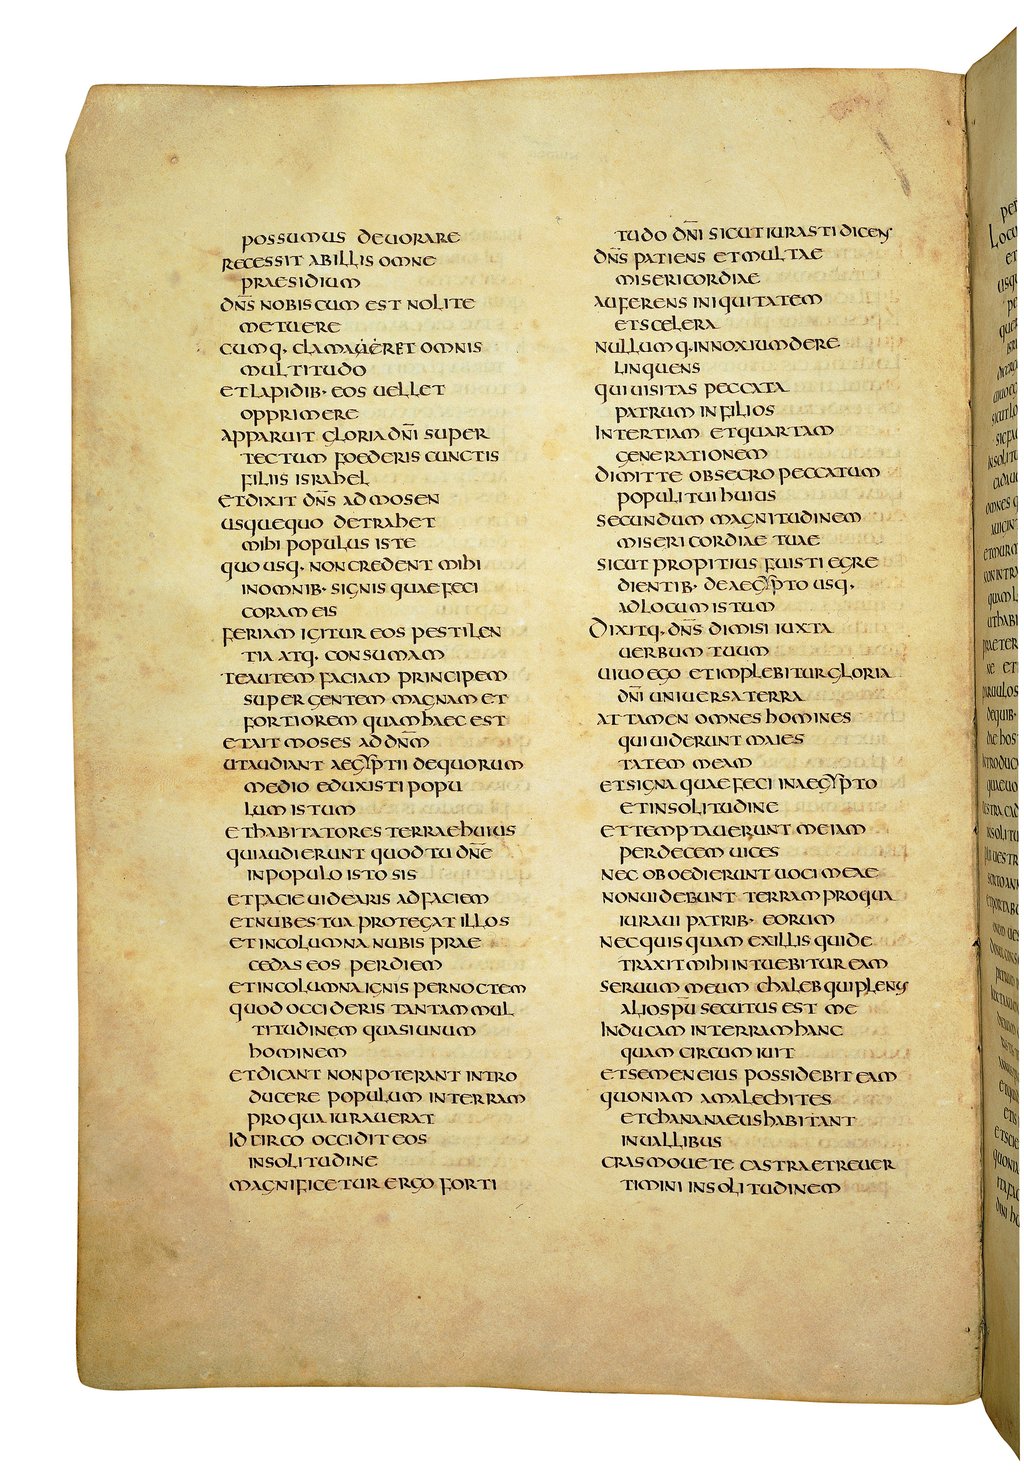 possumus deuorare
recessit ab illis omne
praesidium
dn̅s nobiscum est nolite
metuere
cumq· clamaret omnis
multitudo
et lapidib· eos uellet
opprimere
apparuit gloria dn̅i super
tectum foederis cunctis
filiis israhel
et dixit dn̅s ad mosen
usquequo detrahet
mihi populus iste
quousq· non credent mihi
in omnib· signis quae feci
coram eis
feriam igitur eos pestilen
tia atq· consumam
te autem faciam principem
super gentem magnam et
fortiorem quam haec est
et ait moses ad dn̅m
ut audiant aegyptii de quorum
medio eduxisti popu
lum istum
et habitatores terrae huius
qui audierunt quod tu dn̅e
in populo isto sis
et facie uidearis ad faciem
et nubes tua protegat illos
et in columna nubis prae
cedas eos per diem
et in columna ignis per noctem
quod occideris tantam mul
titudinem quasi unum
hominem
et dicant non poterant intro
ducere populum in terram
pro qua iurauerat
idcirco occidit eos
in solitudine
magnificetur ergo forti
tudo dn̅i sicut iurasti dicens
dn̅s patiens et multae
misericordiae
auferens iniquitatem
et scelera
nullumq· innoxium dere
linquens
qui uisitas peccata
patrum in filios
in tertiam et quartam
generationem
dimitte obsecro peccatum
populi tui huius
secundum magnitudinem
misericordiae tuae
sicut propitius fuisti egre
dientib· de aegypto usq·
ad locum istum
Dixitq· dn̅s dimisi iuxta
uerbum tuum
uiuo ego et implebitur gloria
dn̅i uniuersa terra
attamen omnes homines
qui uiderunt maies
tatem meam
et signa quae feci in aegypto
et in solitudine
et temptauerunt me iam
per decem uices
nec oboedierunt uoci meae
non uidebunt terram pro qua
iuraui patrib· eorum
nec quisquam ex illis qui de
traxit mihi intuebitur eam
seruum meum chaleb qui plens
alio spu̅ secutus est me
inducam in terram hanc
quam circumiuit
et semen eius possidebit eam
quoniam amalechites
et chananaeus habitant
in uallibus
cras mouete castra et reuer
timini in solitudinem